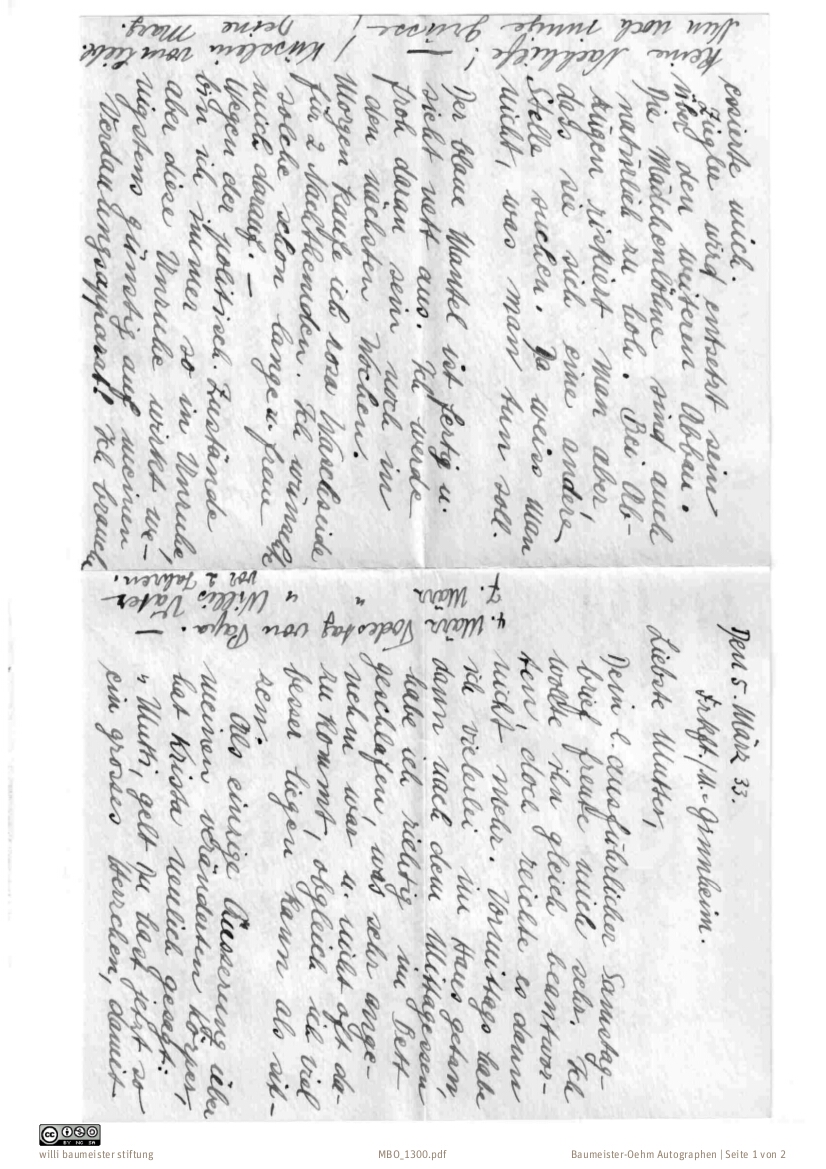 Den 5. März 33.
Frkft./M.-Ginnheim.
Liebste Mutter,
Dein l. ausführlicher Samstag-
brief freute mich sehr. Ich
wollte ihn gleich beantwor-
ten, doch reichte es dann
nicht mehr. Vormittags habe
ich vielerlei im Haus getan,
dann nach dem Mittagessen
habe ich richtig im Bett
geschlafen, was sehr ange-
nehm war u. nicht oft da-
zu kommt, obgleich ich viel
besser liegen kann als sit-
zen.
Als einzige Äusserung über
meinen veränderten Körper,
hat Krista neulich gesagt:
"Mutti, gelt Du hast jetzt so
ein grosses Herrchen, damit
4. März Todestag von Papa. —
7. März " " Willis Vater
vor 2 Jahren.
essierte mich.
Ziegler wird entsetzt sein
über den weiteren Abbau.
Die Mädchenlöhne sind auch
natürlich zu hoh. Bei Ab-
zügen riskiert man aber,
dass sie sich eine andere
Stelle suchen. Da weiss man
nicht, was man tun soll.
Der blaue Mantel ist fertig u.
sieht nett aus. Ich werde
froh daran sein noch in
den nächsten Wochen.
Morgen kaufe ich rosa Waschseide
für 2 Nachthemden. Ich wünsch
solche schon lange u. freue
mich darauf. —
Wegen der politisch. Zustände
bin ich immer so in Unruhe,
aber diese Unruhe wirkt we-
nigstens günstig auf meinen
Verdauungsapparat! Ich brauch
keine Nachhilfe!
Nun noch innige Grüsse! —
Küsslein vom Liebl.
Deine Marg.
willi baumeister stiftung
MBO_1300.pdf
Baumeister-Oehm Autographen | Seite 1 von 2
CC BY NC SA